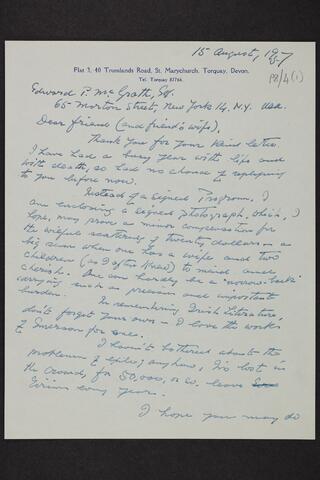 15 August, 1957
Flat 3, 40 Trumlands Road, St. Marychurch, Torquay, Devon.
Tel. Torquay 87766.
P8/4(1)
Edward P. McGrath,
65 Morton Street, New York 14. N.Y. USA.
Dear friend (and friend's wife),
Thank you for your kind letter.
I have had a busy year with life and
with death, so had no chance of replying
to you before now.
Instead of a signed Program, I
am enclosing a signed photograph, which, I
hope, may prove a minor compensation for
the wilful scattering of twenty dollars – a
big sum when one has a wife and two
children (as I often had) to mind and
cherish. One can hardly be a 'narrow-back'
carrying such a precious and important
burden.
In remembering Irish Literature,
don't forget your own – I love the works
of Emerson for one.
I haven't bothered about the
problem of exile; anyhow, it's lost in
the crowd, for 50,000, or so, leave
Eirinn every year.
I hope you may do